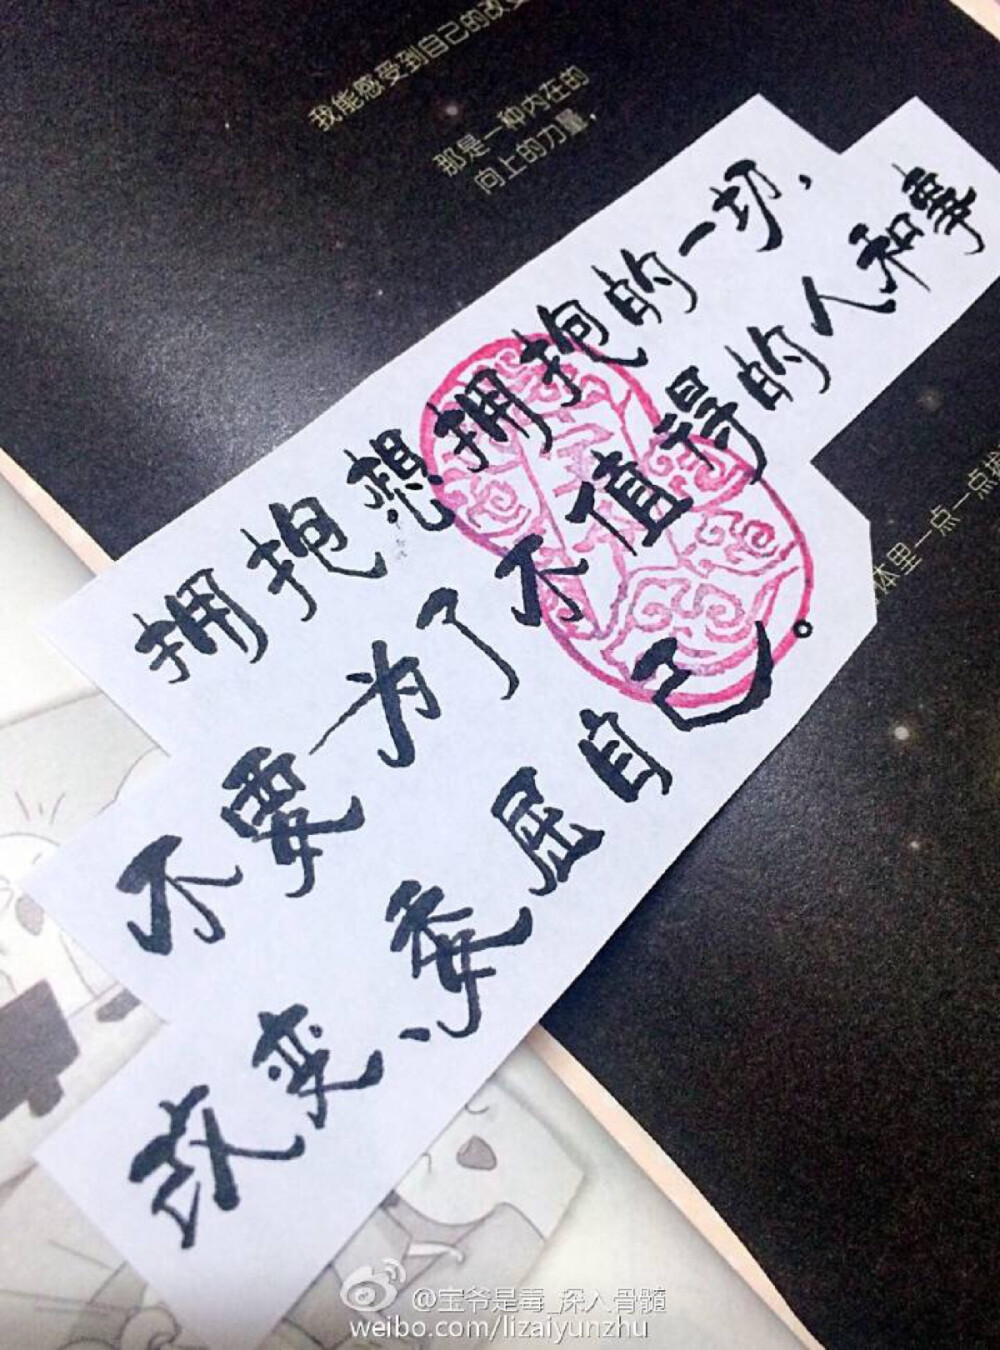 我能感受到自己的改变
那是一种内在的
向上的力量，
拥抱想拥抱的一切，
不要为了不值得的人和事
改变、委屈自己。
体里一点一点
@宝爷是毒_深入骨髓
weibo.com/lizaiyunzhu